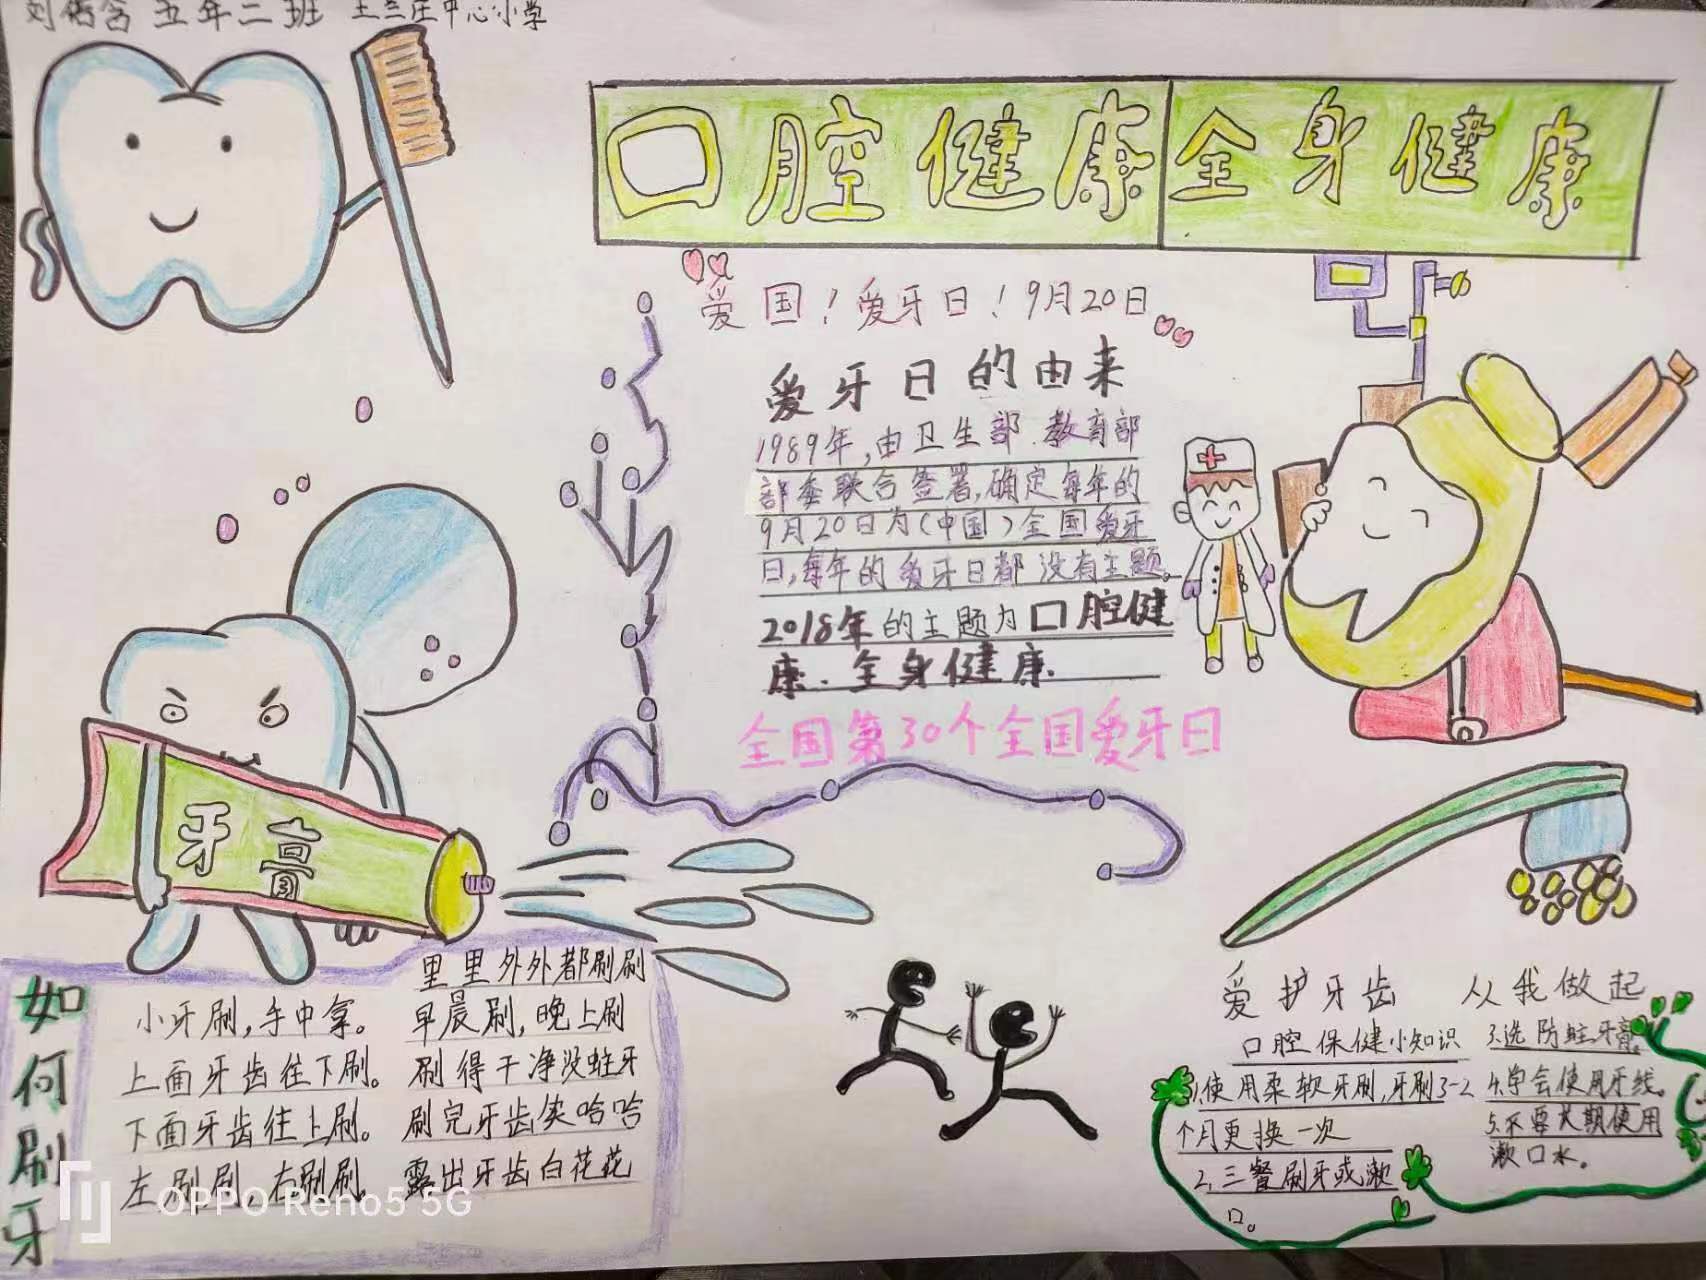 五年二班 王兰庄中心小学
口腔健康 全身健康
爱国！爱牙日！9月20日
爱牙日的由来
1989年,由卫生部.教育部
部委联合签署,确定每年的
9月20日为(中国)全国爱牙
日,每年的爱牙日都没有主题。
2018年的主题为口腔健
康.全身健康.
全国第30个全国爱牙日
牙膏
如何刷牙
小牙刷,手中拿。
上面牙齿往下刷。
下面牙齿往上刷。
左刷刷,右刷刷。
里里外外都刷刷
早晨刷,晚上刷
刷得干净没蛀牙
刷完牙齿笑哈哈
露出牙齿白花花
爱护牙齿 从我做起
口腔保健小知识
1.使用柔软牙刷,牙刷3-2
个月更换一次
2.三餐刷牙或漱
口。
3.选防蛀牙膏。
4.学会使用牙线。
5.不要长期使用
漱口水。
OPPO Reno5 5G